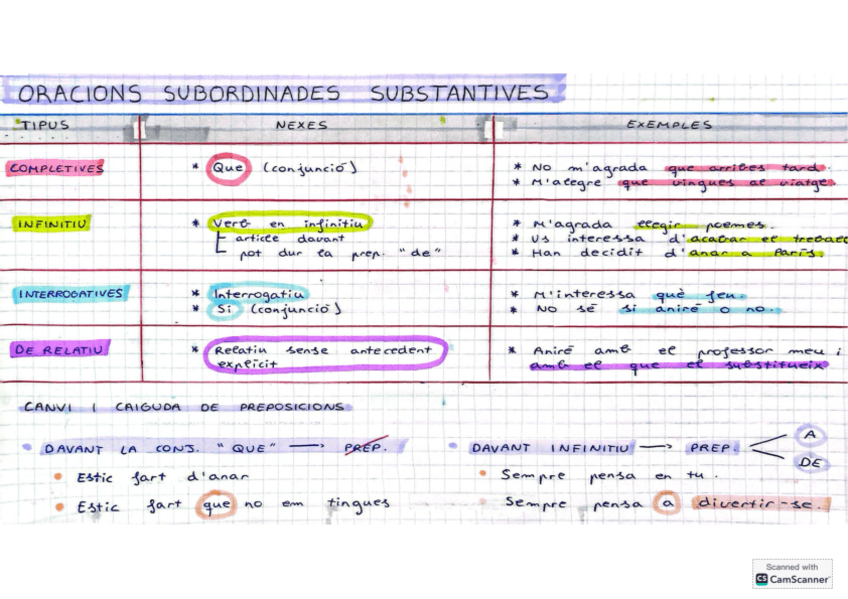 ORACIONS SUBORDINADES SUBSTANTIVES
TIPUS NEXES EXEMPLES
COMPLETIVES
* Que (conjunció)
* No m'agrada que arribes tard.
* M'alegre que vingues al viatge.
INFINITIU
* Verb en infinitiu
article davant
pot dur la prep. "de"
* M'agrada elegir poemes.
* Us interessa d'acabar el treball
* Han decidit d'anar a París.
INTERROGATIVES
* Interrogatiu
* Si (conjunció)
* M'interessa què feu.
* No sé si aniré o no.
DE RELATIU
* Relatiu sense antecedent
explícit
* Aniré amb el professor meu i
amb el que el substitueix
CANVI I CAIGUDA DE PREPOSICIONS
DAVANT LA CONJ. "QUE" → PREP.
Estic fart d'anar
Estic fart que no em tingues
DAVANT INFINITIU → PREP.
A
DE
Sempre pensa en tu.
Sempre pensa a divertir-se.
Scanned with
CS CamScanner